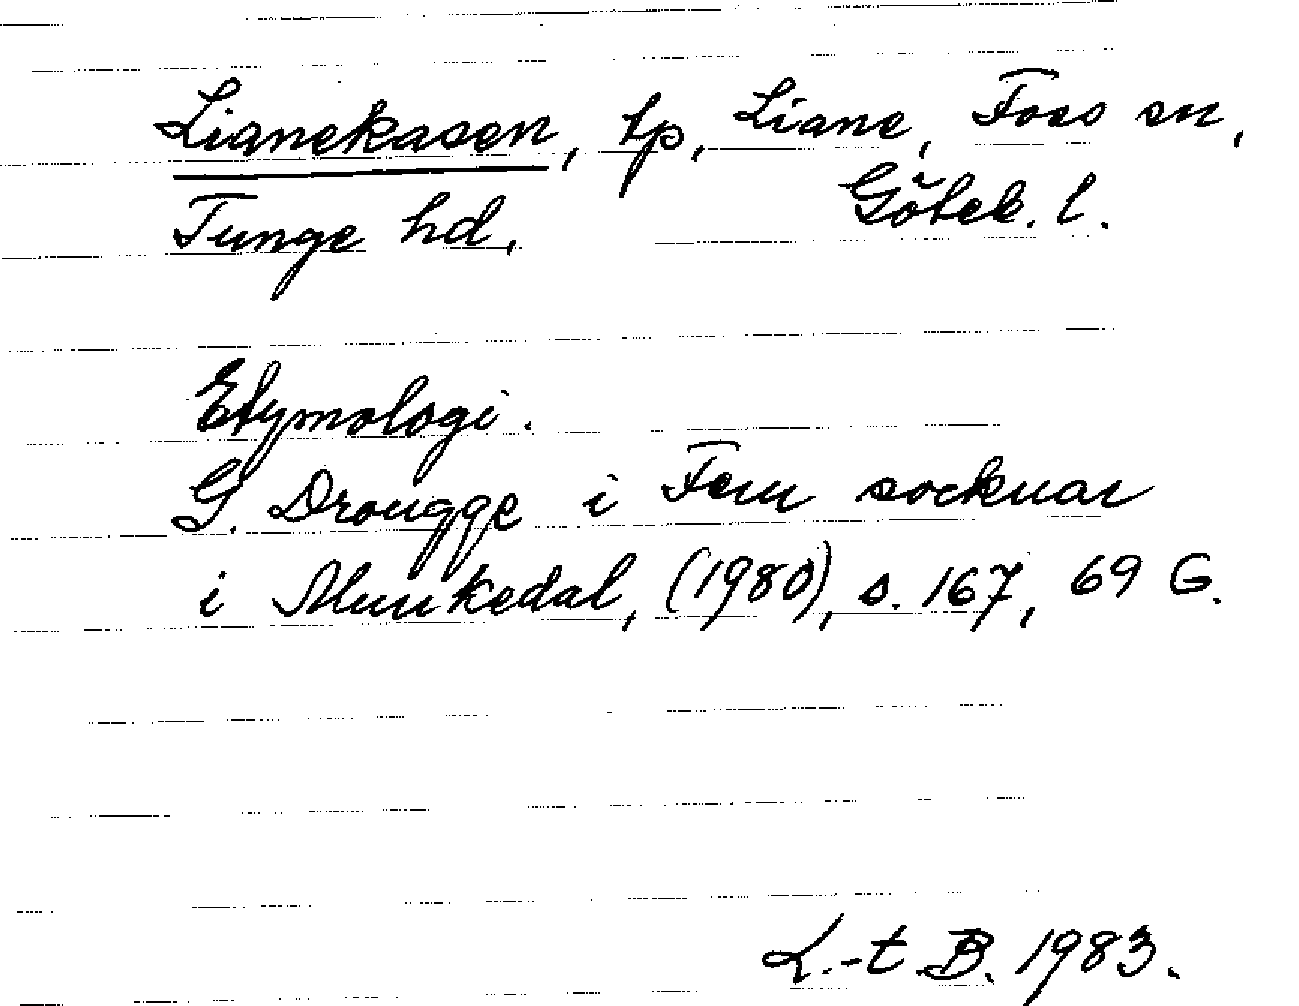 Lianekasen, tp, Liane, Foss sn,
Tunge hd, Göteb. l.
Etymologi.
G. Drougge i Fem socknar
i Munkedal, (1980), s. 167, 69 G.
L.-t B. 1983.